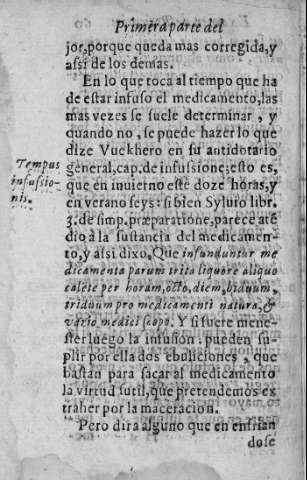 Primera parte del
jor, porque queda mas corregida, y
assi de los demas.
En lo que toca al tiempo que ha
de estar infuso el medicamento, las
mas vezes se suele determinar, y
quando no, se puede hazer lo que
dize Vuekhero en su antidotario
general, cap. de infussione; esto es,
que en inuierno estè doze horas, y
en verano seys: si bien Syluio libr.
3. de simp. præparatione, parece até
diò a la sustancia del medicamen-
to, y assi dixo, Que infunduntur me
dicamenta parum trita liquore aliquo
calēte per horam, octo, diem, biduum,
triduum pro medicamenti natura, &
vario medici scopo. Y si fuere mene-
ster luego la infusion, pueden su-
plir por ella dos ebuliciones, que
bastan para sacar al medicamento
la virtud sutil, que pretendemos ex
traher por la maceracion.
Pero dira alguno que en enfrian
dose
Tempus
infussio-
nis.